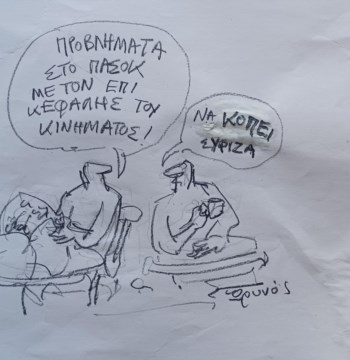 ΠΡΟΒΛΗΜΑΤΑ
ΣΤΟ ΠΑΣΟΚ
ΜΕ ΤΟΝ ΕΠΙ
ΚΕΦΑΛΗΣ ΤΟΥ
ΚΙΝΗΜΑΤΟΣ!
ΝΑ ΚΟΠΕΙ
ΣΥΡΙΖΑ